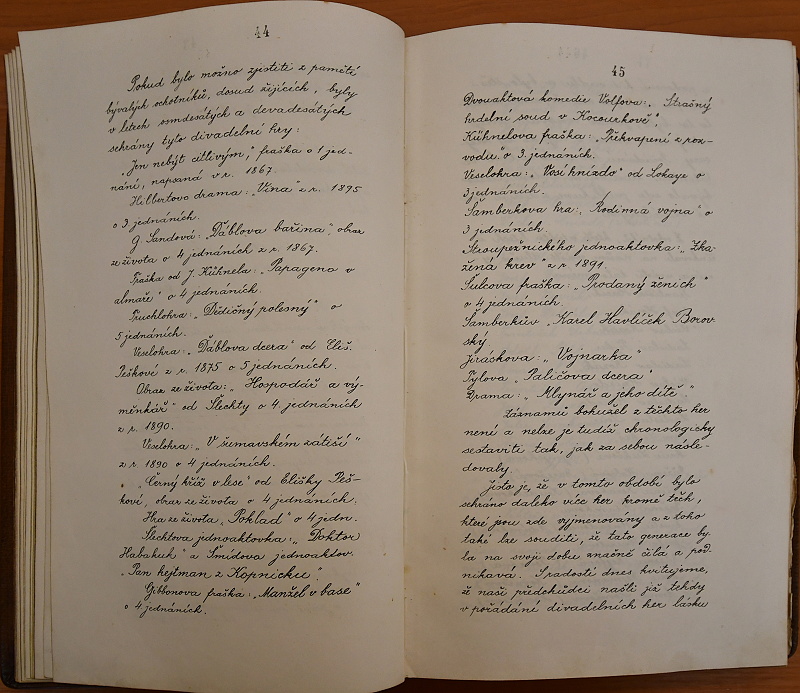 44
Pokud bylo možno zjistiti z pamětí
bývalých ochotníků, dosud žijících, byly
v letech osmdesátých a devadesátých
sehrány tyto divadelní hry:
„Jen nebýt citlivým," fraška o 1 jed-
nání, napsaná v r. 1867.
Hilbertovo drama: „Vina" z r. 1875
o 3 jednáních.
G. Sandová: „Ďáblova bařina", obraz
ze života o 4 jednáních z r. 1867.
Fraška od J. Kühnela: „Papageno v
almaře" o 4 jednáních.
Truchlohra: „Dědičný polesný" o
5 jednáních.
Veselohra: „Ďáblova dcera" od Eliš.
Peškové z r. 1875 o 5 jednáních.
Obraz ze života: „Hospodář a vý-
měnkář" od Šlechty o 4. jednáních
z r. 1890.
Veselohra: „V šumavském zátiší"
z r 1890 o 4 jednáních.
„Černý kříž v lese" od Elišky Peš-
kové, obraz ze života o 4 jednáních.
Hra ze života „Poklad" o 4 jedn.
Šlechtova jednoaktovka: „Doktor
Habakuk" a Šmídova jednoaktov.
„Pan hejtman z Kopnicku".
Gibbonova fraška: „Manžel v base"
o 4 jednáních.
45
Dvouaktová komedie Volfova: „Strašný
hrdelní soud v Kocourkově"
Kühnelova fraška: „Překvapení z roz-
vodu" o 3. jednáních.
Veselohra: „Vosí hnízdo" od Lokaye o
3 jednáních.
Šamberkova hra: „Rodinná vojna" o
3 jednáních.
Stroupežnického jednoaktovka: „Zka-
žená krev" z r 1891.
Šulcova fraška: „Prodaný ženich"
o 4 jednáních.
Šamberkův „Karel Havlíček Borov-
ský
Jiráskova: „Vojnarka"
Tylova „Paličova dcera"
Drama: „Mlynář a jeho dítě."
Záznamů bohužel z těchto her
není a nelze je tudíž chronologicky
sestaviti tak, jak za sebou násle-
dovaly.
Jisto je, že v tomto období bylo
sehráno daleko více her kromě těch,
které jsou zde vyjmenovány a z toho
také lze souditi, že tato generace by-
la na svoji dobu značně čilá a pod-
nikavá. S radostí dnes kvitujeme,
že naši předchůdci našli již tehdy
v pořádání divadelních her lásku